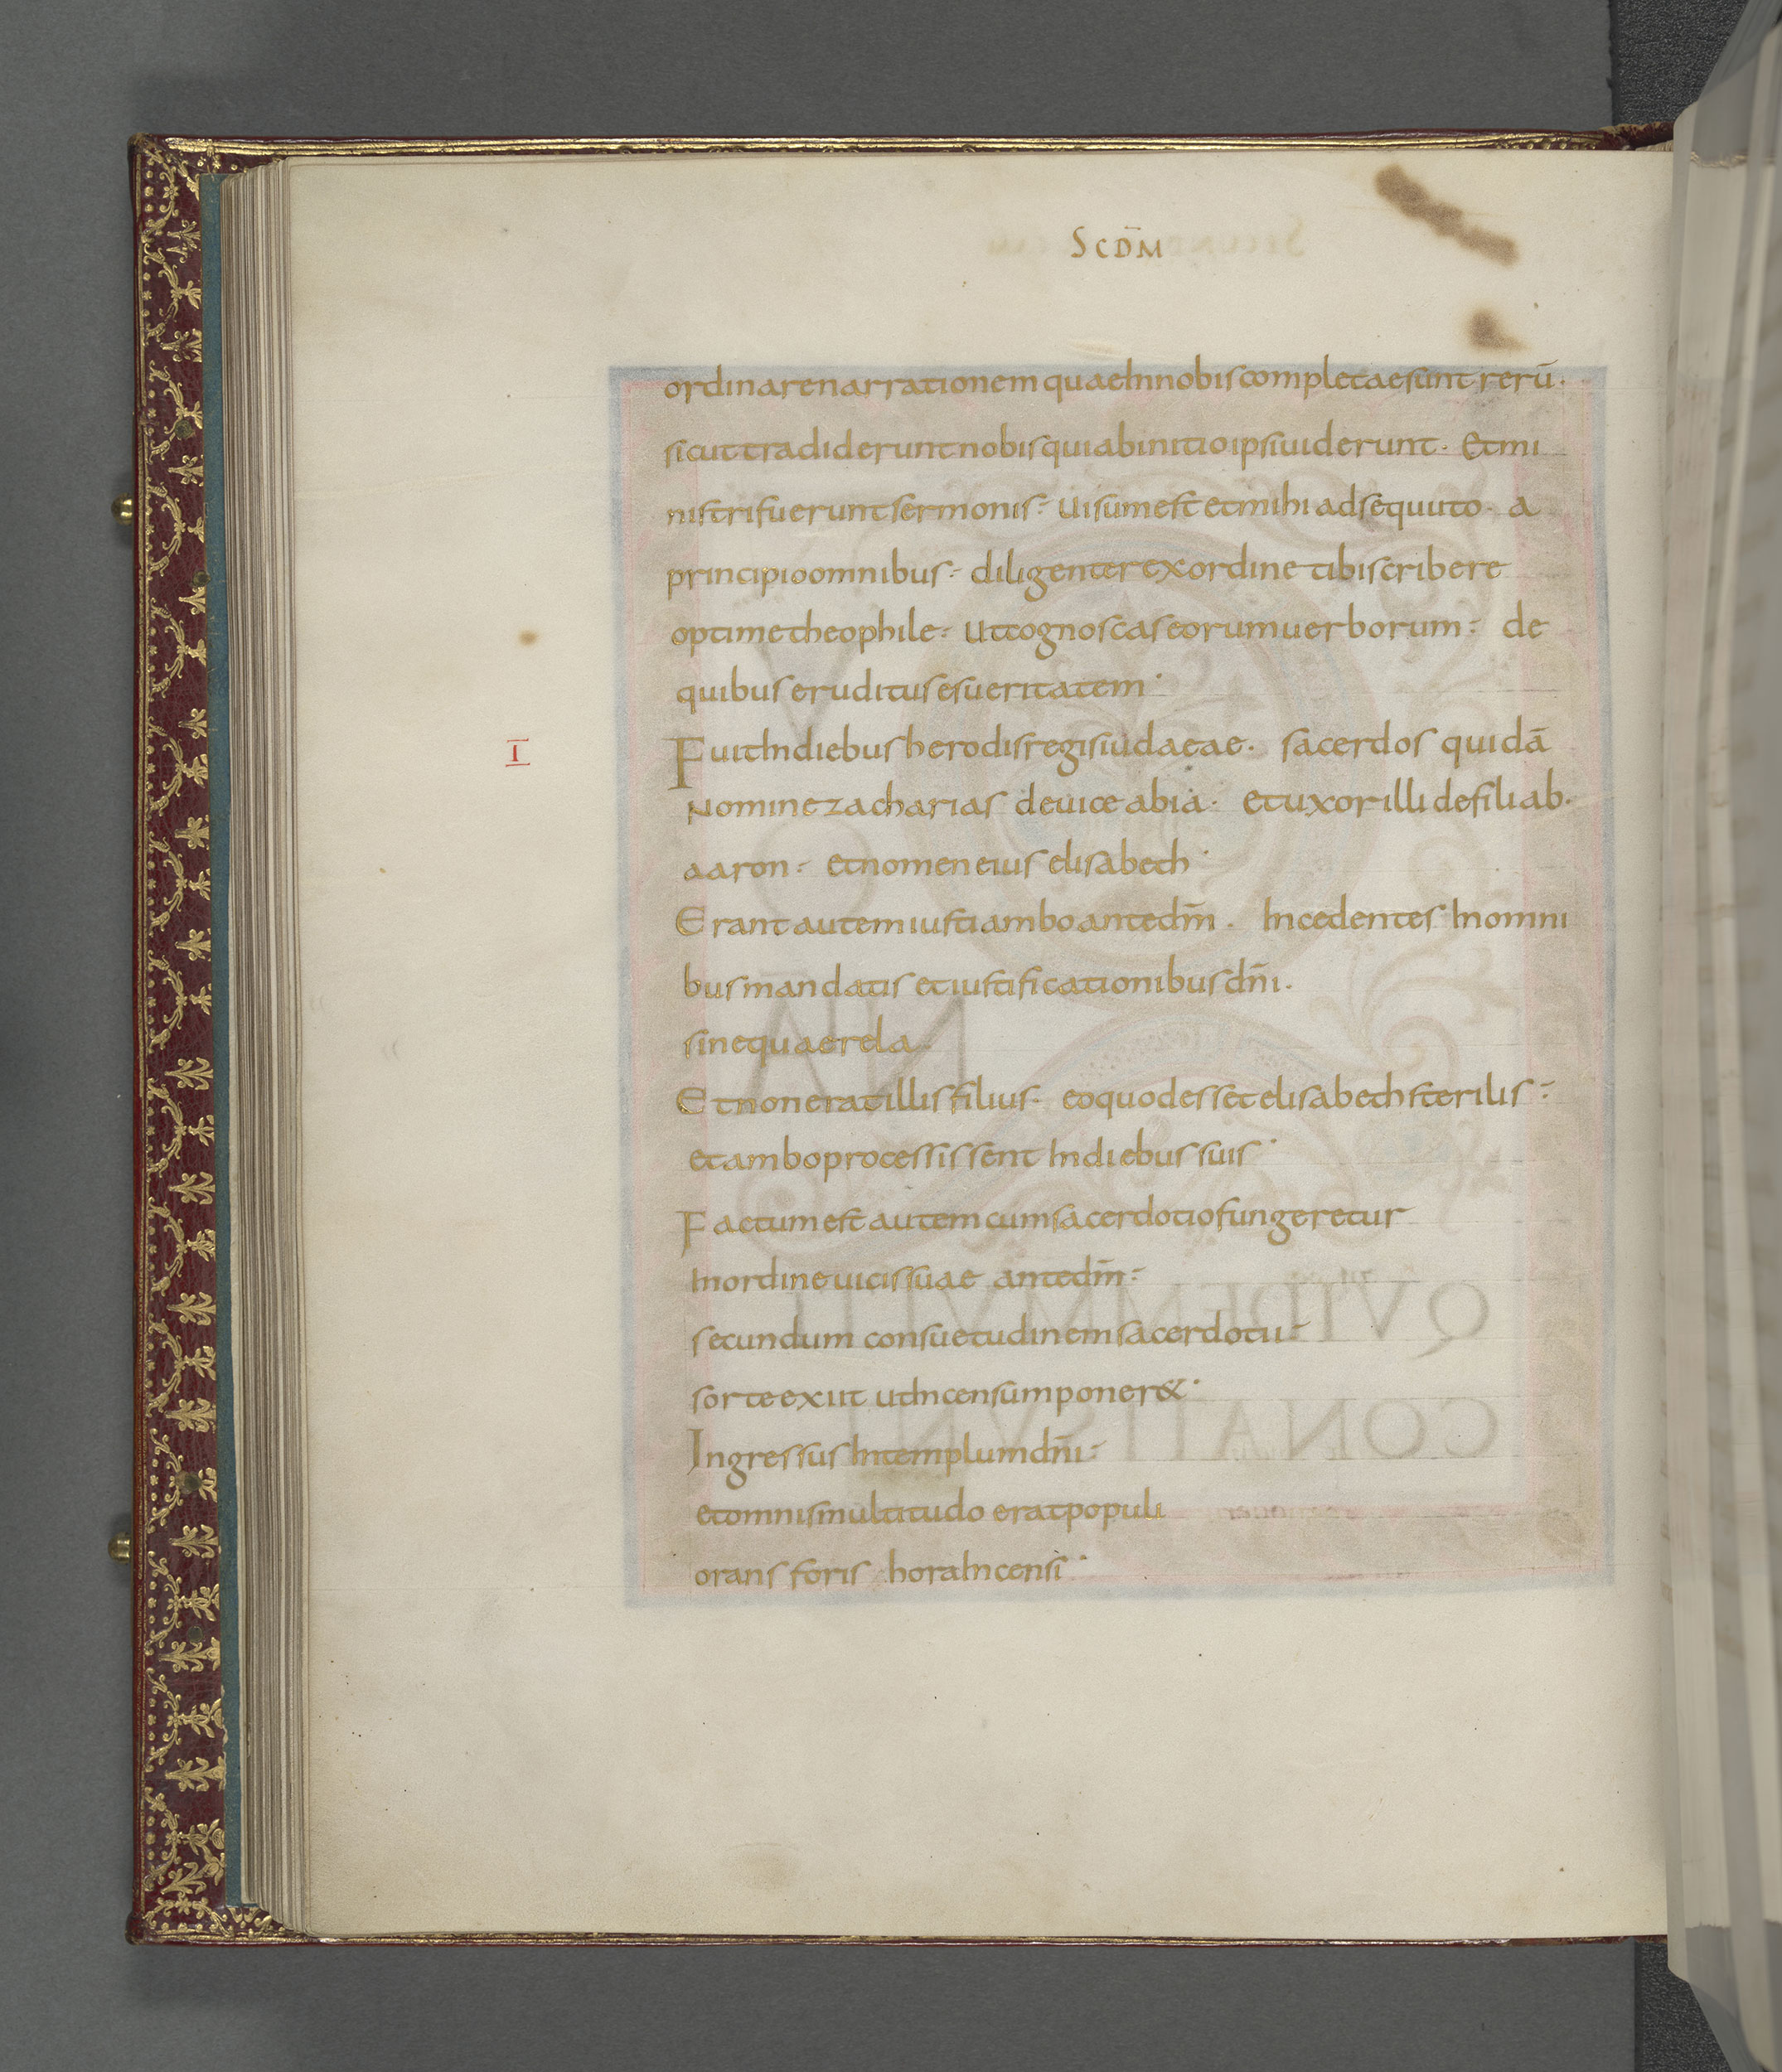 SCDM̄
ordinarenarrationem quaeInnobiscompletaesunt rerū·
sicut tradideruntnobisquiabinitioipsiuiderunt· Etmi
nistrifueruntsermonis· Uisumest etmihi adsequuto· a
principioomnibus· diligenter exordine tibiscribere
optimetheophile· Utcognoscaseorumuerborum· de
quibuseruditusesueritatem·
I
FuitIndiebusherodisregisiudaeae· sacerdos quidā
Nominezacharias deuice abia· etuxorilli defiliab·
aaron· etnomeneius elisabeth·
Erantautemiustiamboantedm̄· Incedentes Inomni
busmandatis etiustificationibusdn̄i·
sinequaerela
Etnoneratillisfilius· eoquodessetelisabethsterilis·
etamboprocessissent Indiebussuis·
Factumest autemcumsacerdotiofungeretur
Inordineuicissuae antedm̄·
secundum consuetudinemsacerdotii·
sorteexiit utIncensumponer&·
IngressusIntemplumdn̄i·
etomnismultitudo eratpopuli
orans foris horaIncensi·